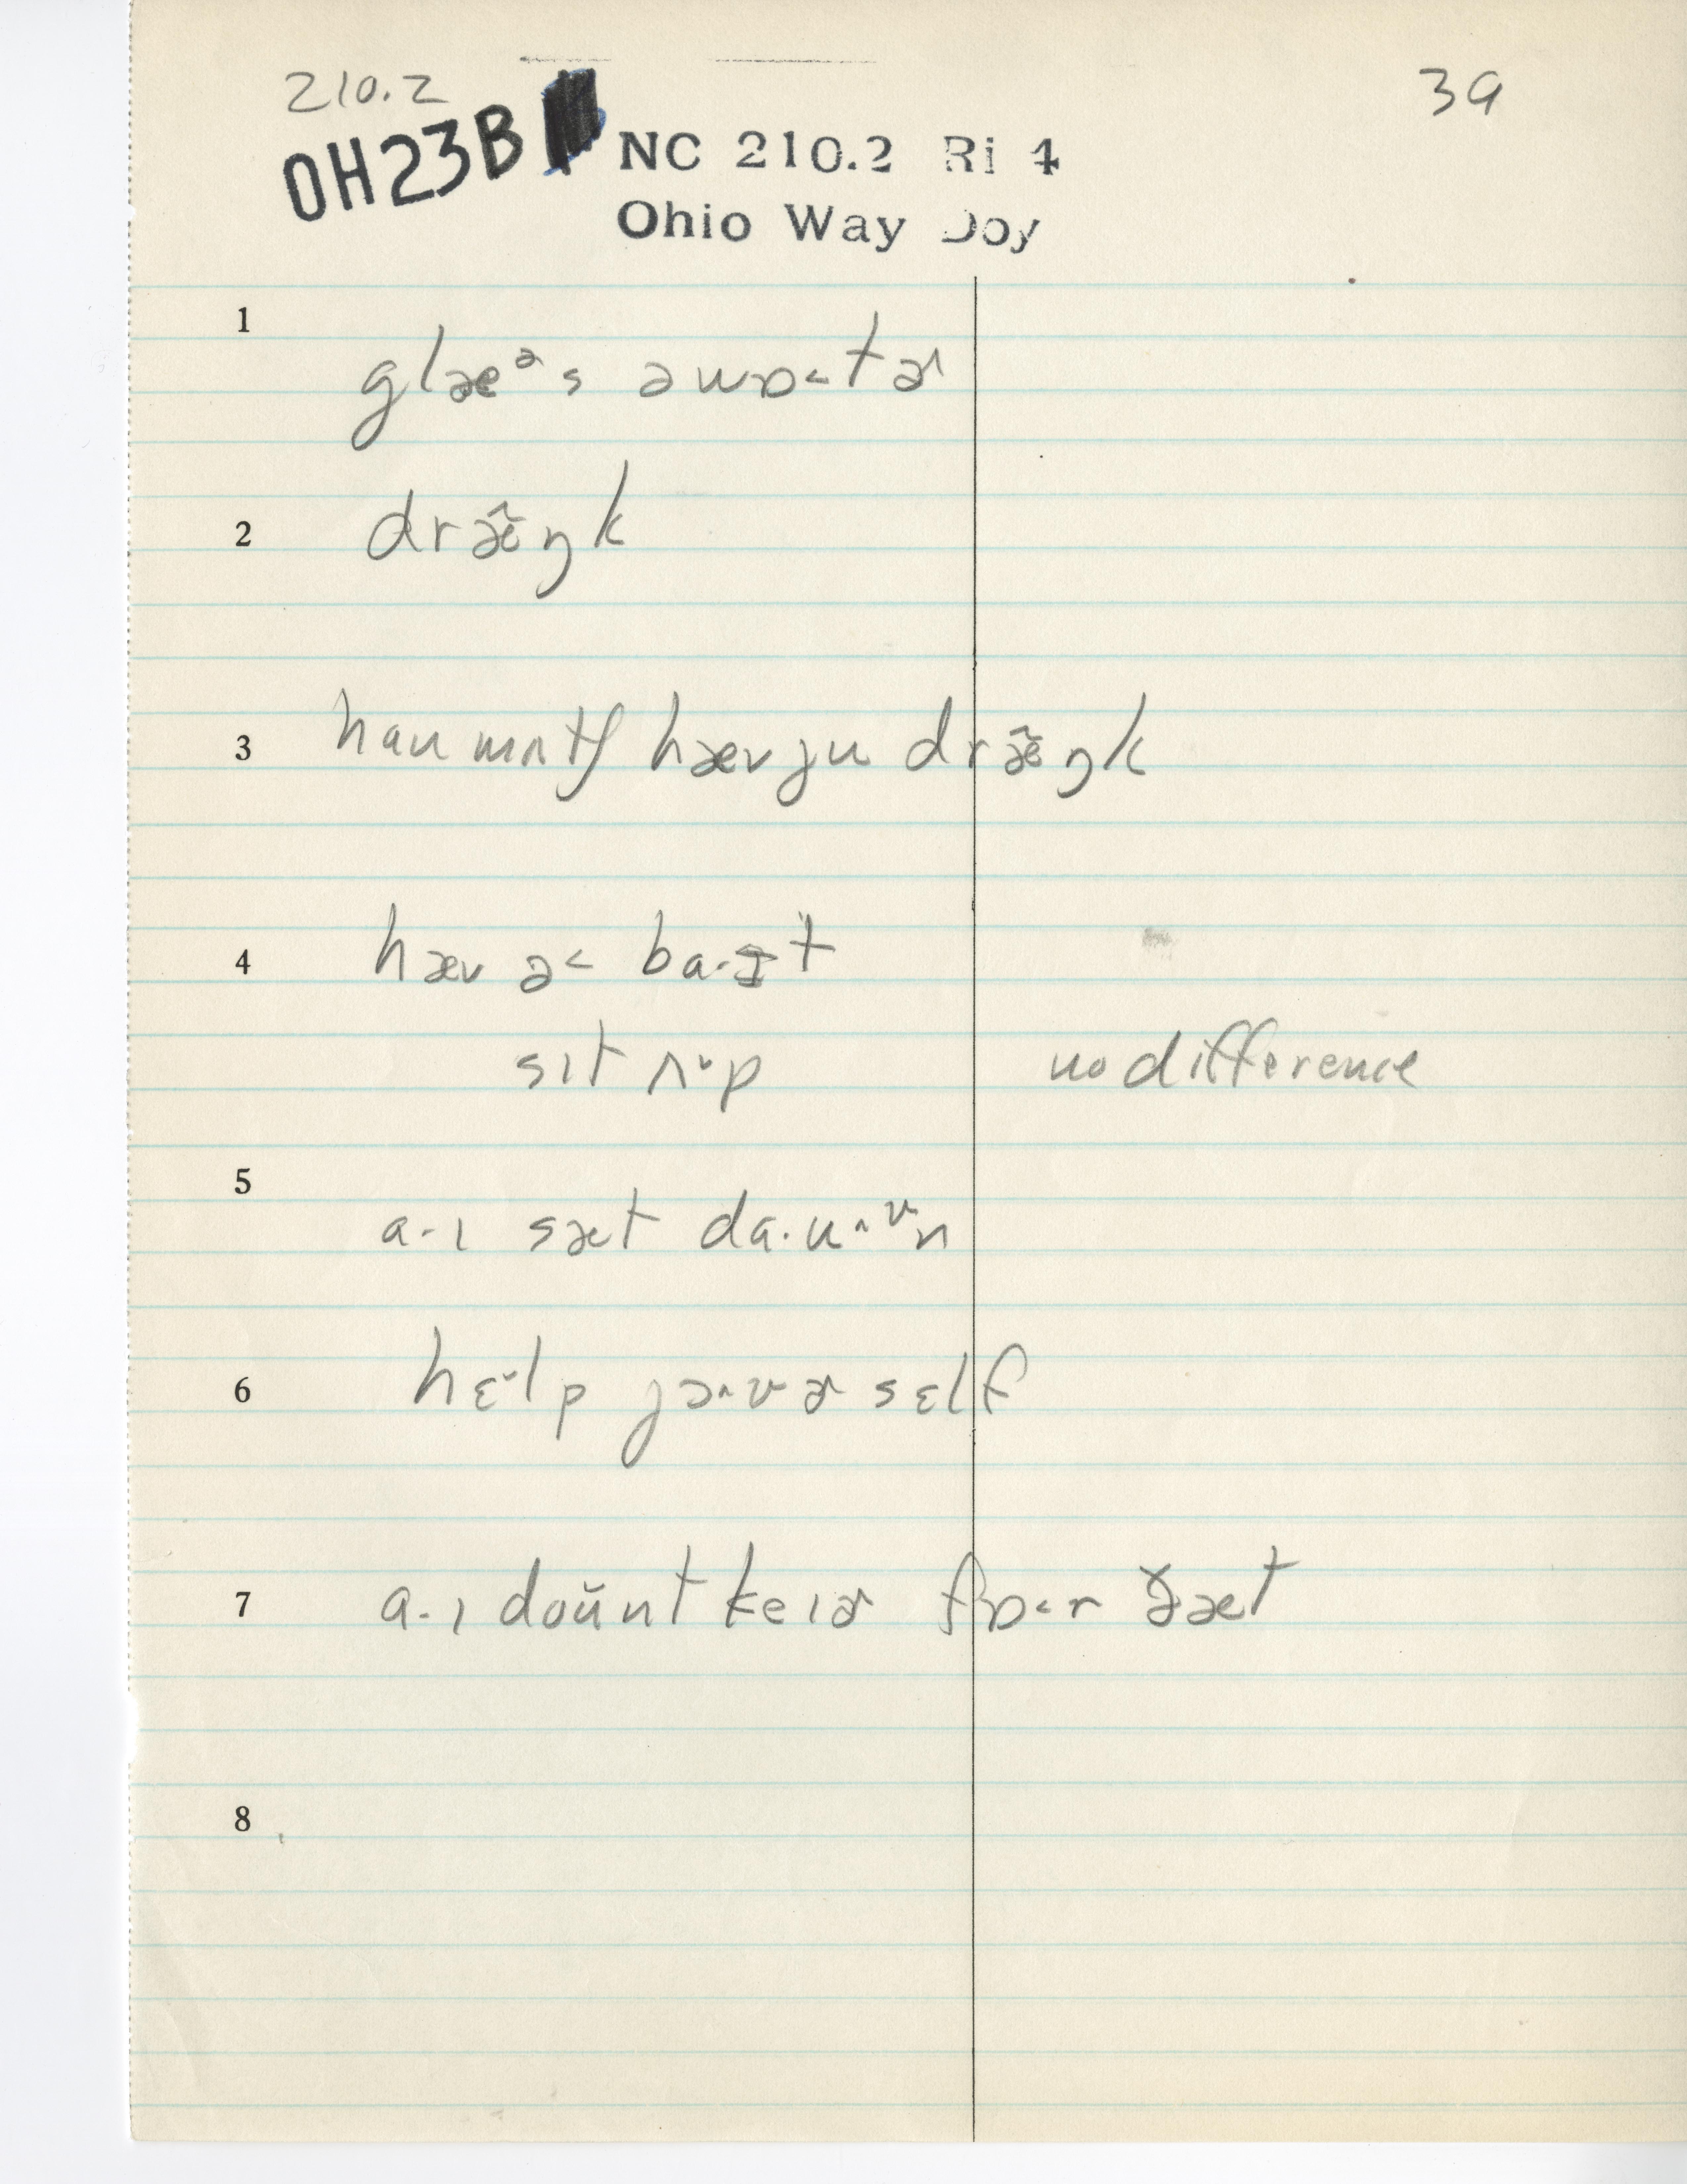 210.2
39
OH23B
NC 210.2 Ri 4
Ohio Way Doy
1
glæᵊs əwɒ˂tɚ
2
dræ̃ŋk
3
hau mʌtʃ hævju dræ̃ŋk
4
hæv ə˂ ba·ɪt
sɪt ʌ˅p
no difference
5
a·ɪ sæt da·u˄ʊn
6
hɛ˅lp jɔ˄ʊɚsɛlf
7
a·ɪ doũnt keɪɚ fɒ˂r ðæt
8